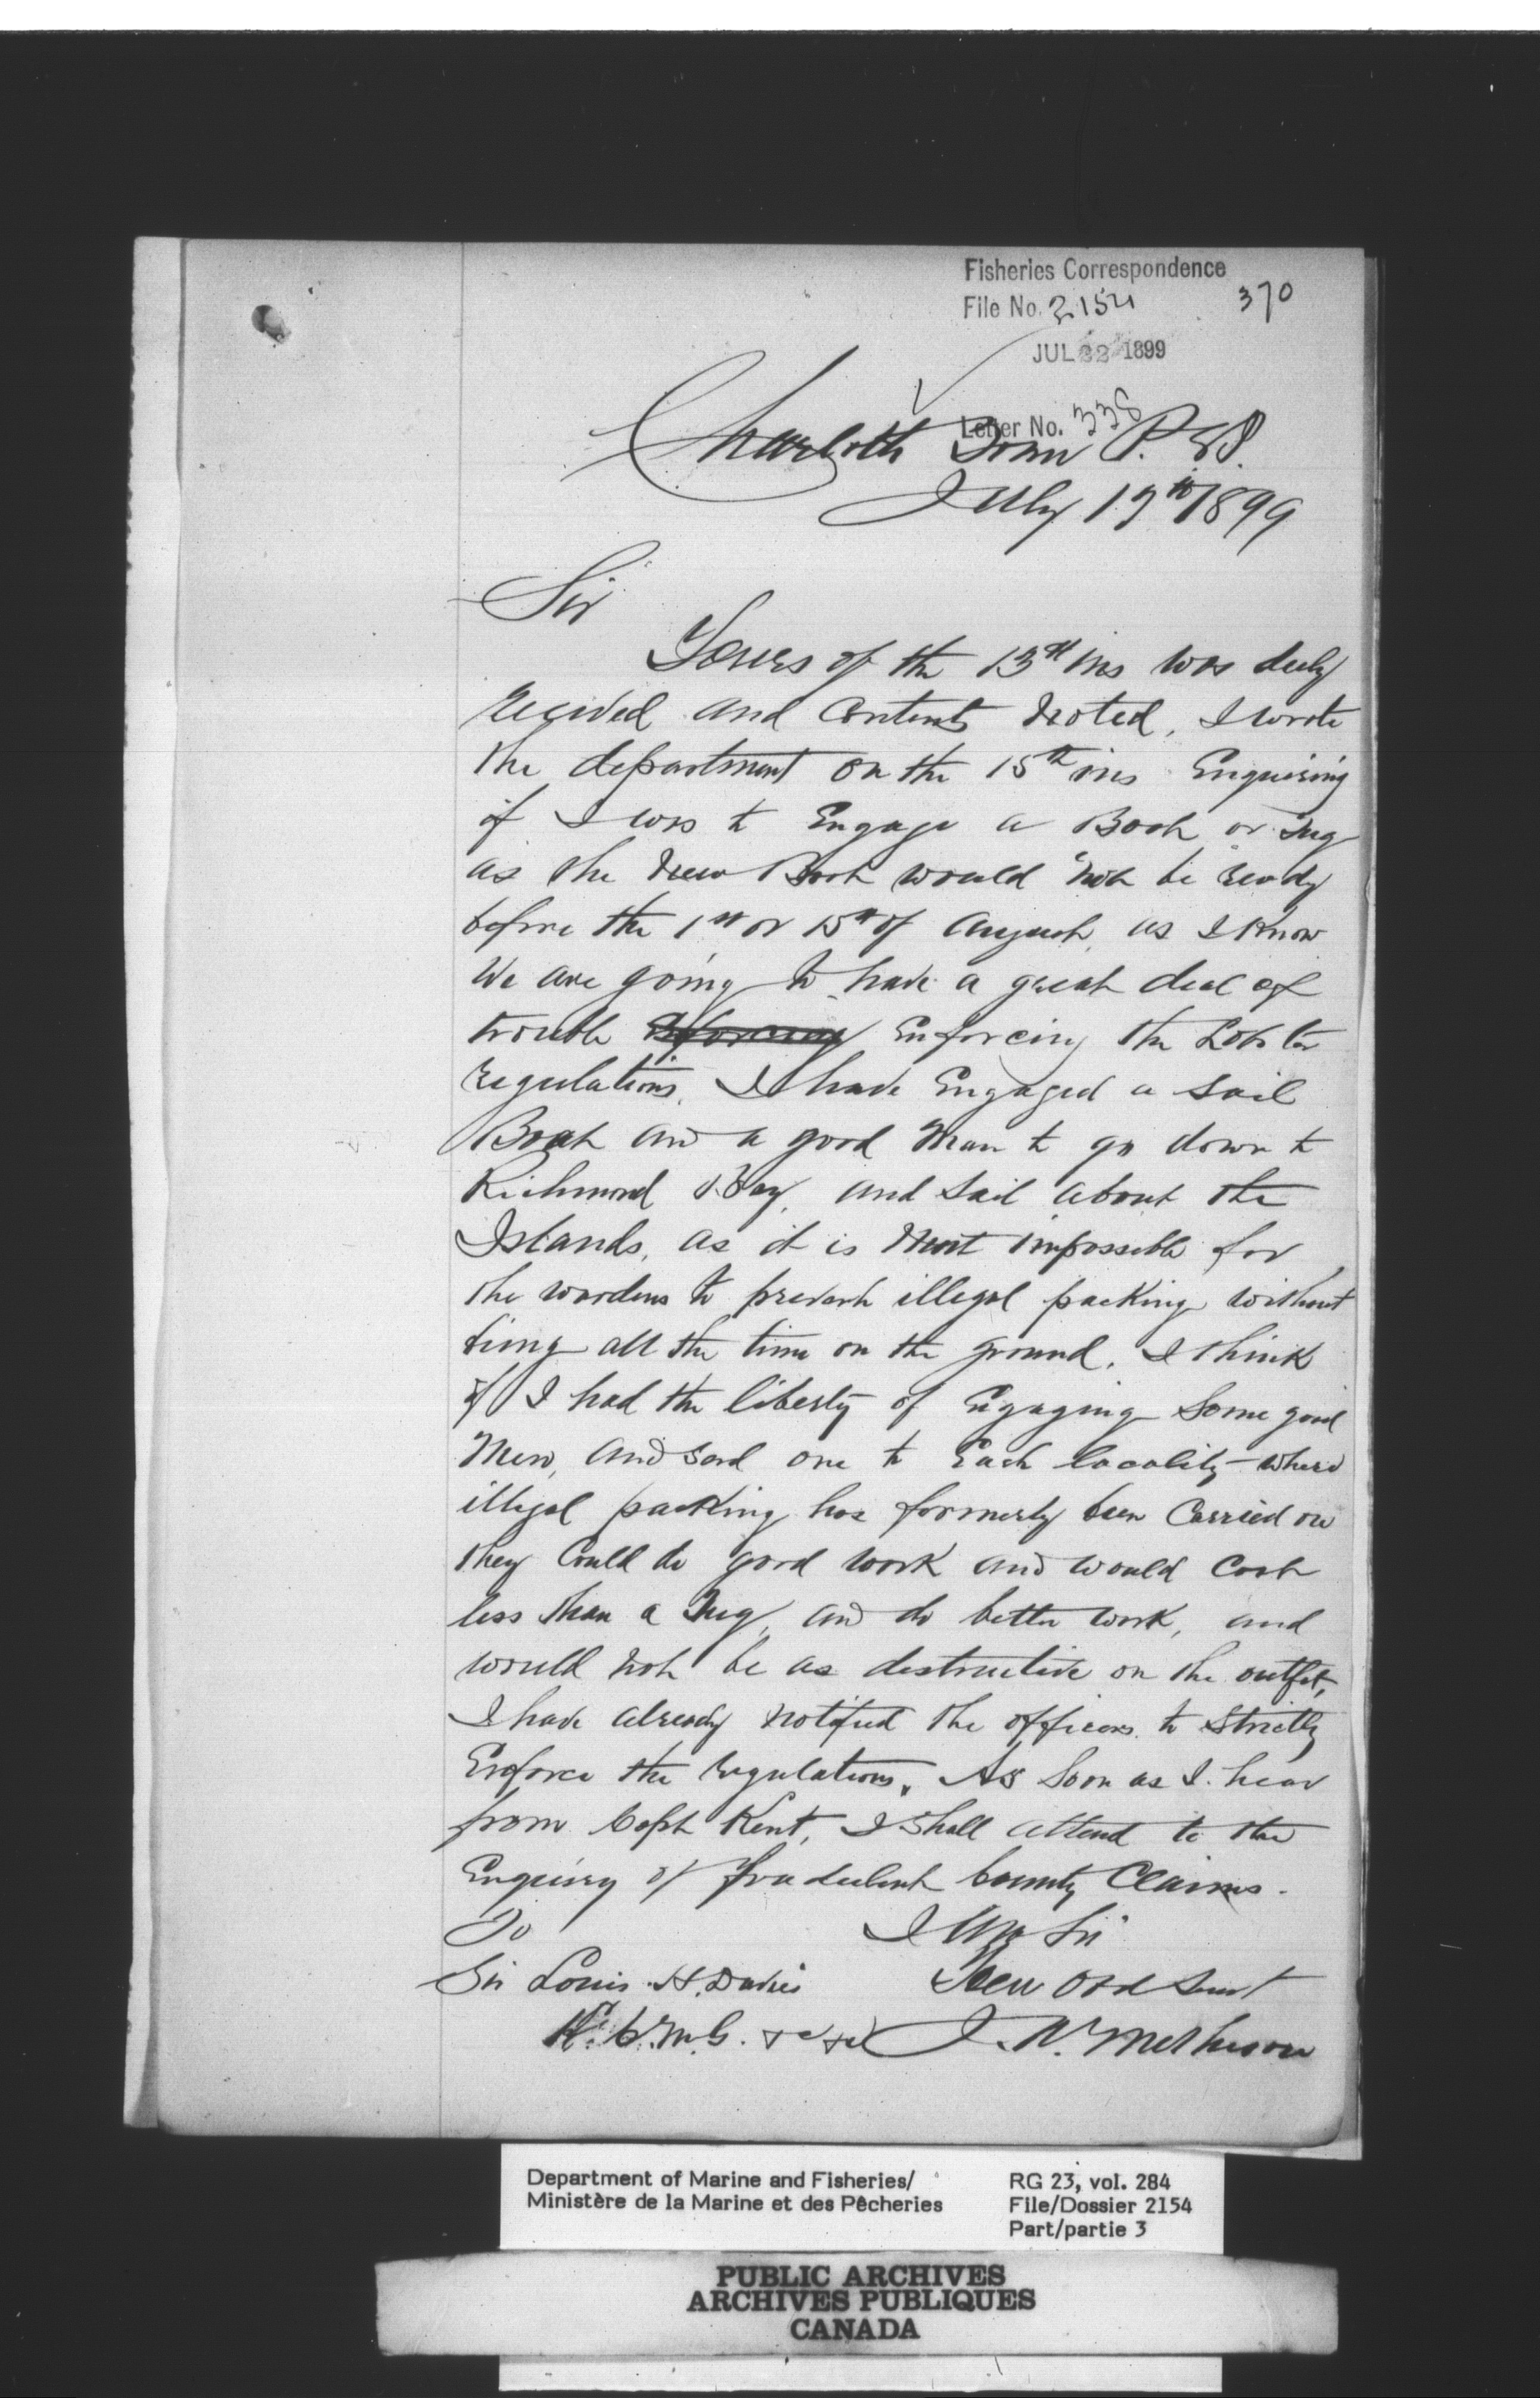 Fisheries Correspondence
File No. 2154
370
JUL 22 1899
Letter No. 338
Charlotte Town P. E I.
July 19th 1899
Sir
Yours of the 13th ins was duly
recived and contents noted, I wrote
the department on the 15th ins Enquiring
if I was to Engage a Boat or Tug
as the new Boat would not be ready
before the 1st or 15th of August, as I Know
We are going to have a great deal of
trouble Enforcing the Lobster
regulations, I have Engaged a sail
Boat and a good man to go down to
Richmond Bay, and sail about the
Islands, as it is most impossible for
the wardens to prevent illegal packing without
being all the time on the ground, I think
if I had the liberty of Engaging some good
Men, and send one to Each locality where
illegal packing has formerly been Carried on
they Could do good work and would Cost
less than a Tug, and do better work, and
would not be as destructive on the outfit,
I have already notified the officers to strictly
Enforce the regulations, As soon as I hear
from Capt Kent, I shall attend to the
Enquiry of fradulent bounty Claims.
To
I Am Sir
Sir Louis H. Davies
Your Obd Servt
K. C. M. G. &c &c
J. A. Matheson
Department of Marine and Fisheries/
Ministère de la Marine et des Pêcheries
RG 23, vol. 284
File/Dossier 2154
Part/partie 3
PUBLIC ARCHIVES
ARCHIVES PUBLIQUES
CANADA